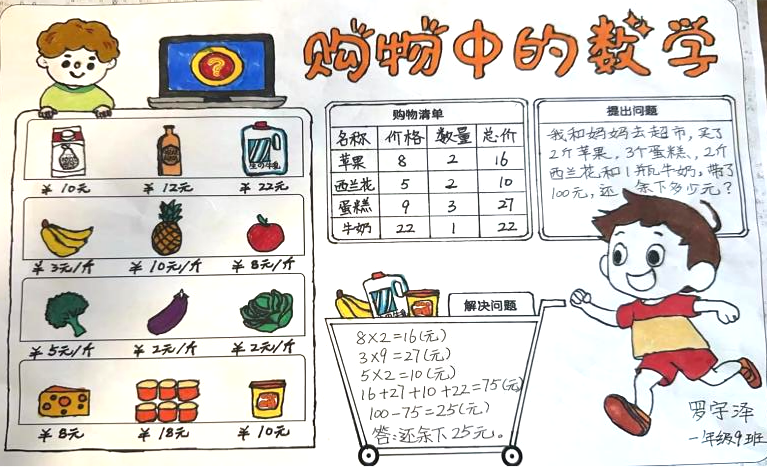 购物中的数学
¥10元 ¥12元 ¥22元
¥3元/斤 ¥10元/斤 ¥8元/斤
¥5元/斤 ¥2元/斤 ¥2元/斤
¥8元 ¥18元 ¥10元
购物清单
名称 价格 数量 总价
苹果 8 2 16
西兰花 5 2 10
蛋糕 9 3 27
牛奶 22 1 22
提出问题
我和妈妈去超市,买了
2斤苹果,3个蛋糕,2斤
西兰花和1瓶牛奶,带了
100元,还余下多少元?
解决问题
8×2=16(元)
3×9=27(元)
5×2=10(元)
16+27+10+22=75(元)
100-75=25(元)
答:还余下25元。
罗宇泽
一年级9班